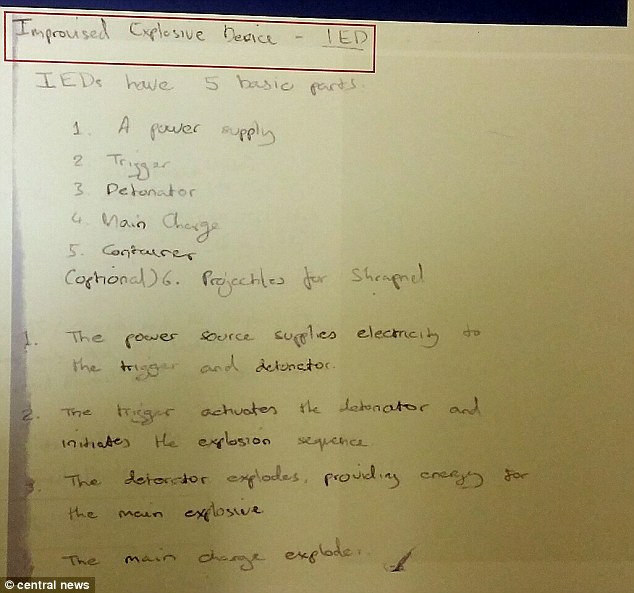 Improvised Explosive Device - IED
IEDs have 5 basic parts.
1. A power supply
2 Trigger
3 Detonator
4. Main Charge
5. Container
(optional) 6. Projectiles for Shrapnel
1. The power source supplies electricity to
the trigger and detonator.
2. The trigger activates the detonator and
initiates the explosion sequence.
3. The detonator explodes, providing energy for
the main explosive
The main charge explode.
© central news